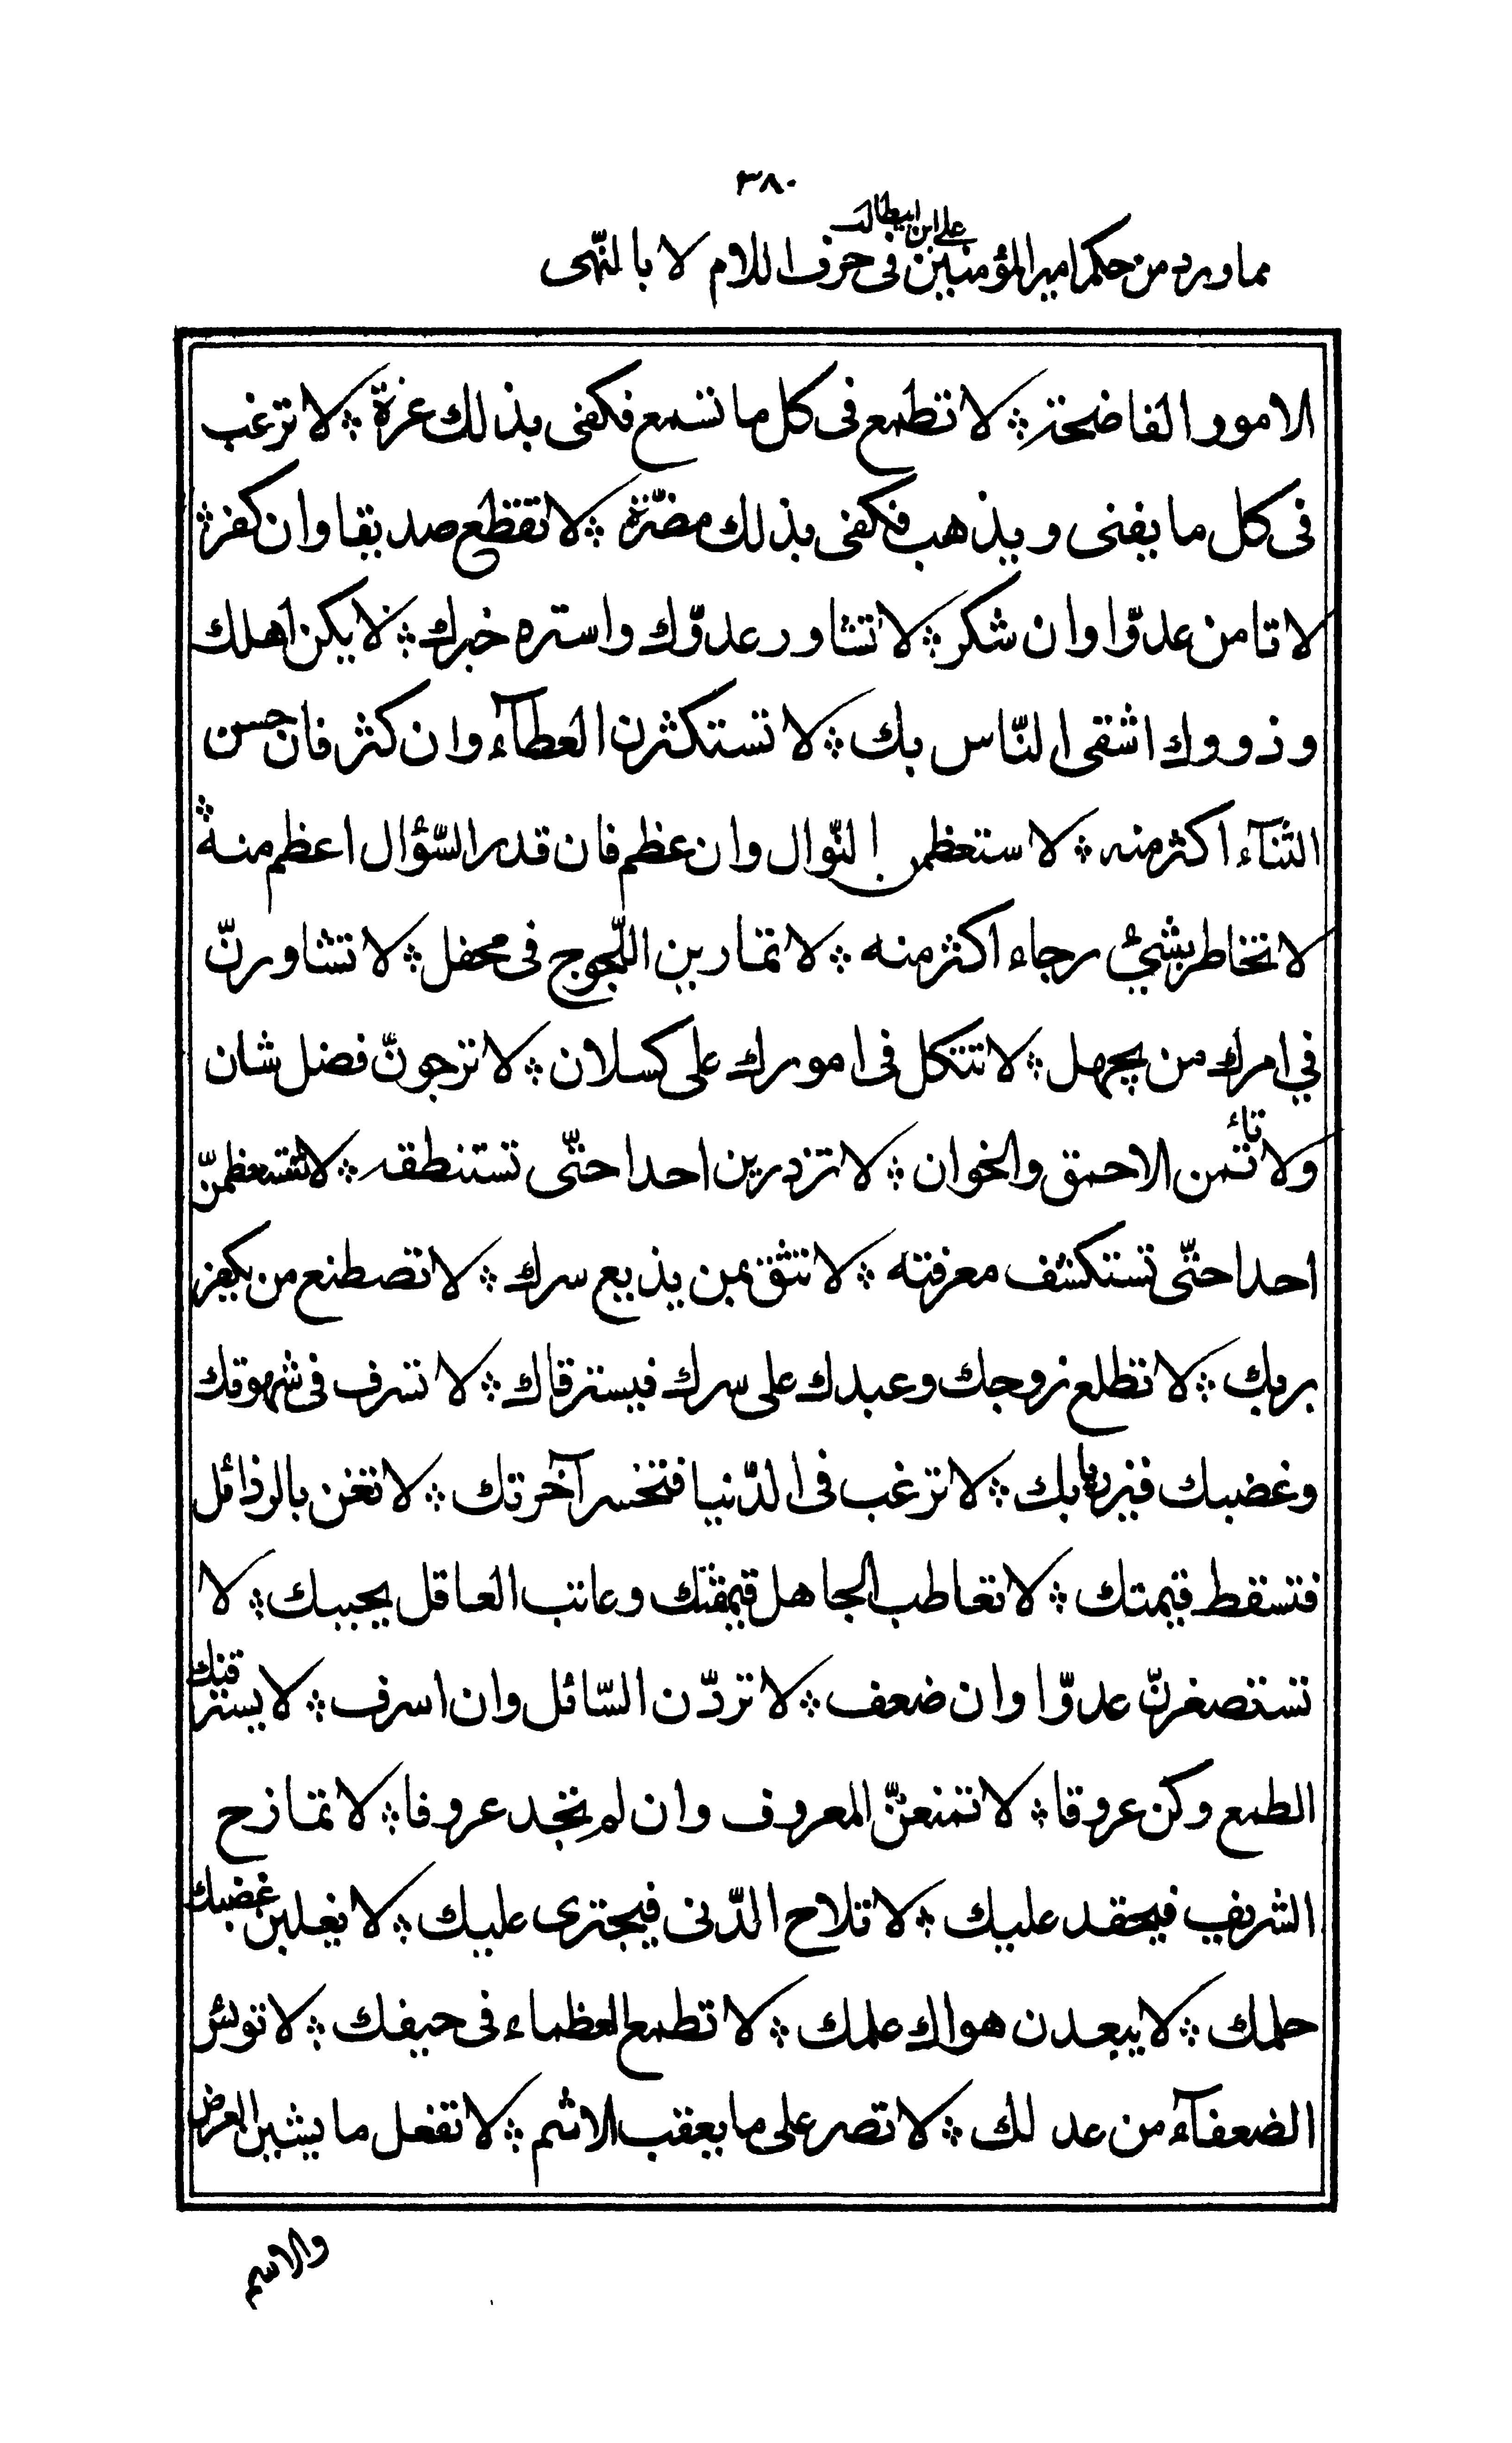 ٣٨٠
مما ورد من حكم امير المؤمنين على ابن ابيطالب فى حرف اللام لا بالنّهى
الامور الفاضحة ؞ لا تطمع فى كل ما تسمع فكفى بذلك غرة ؞ لا ترغب
فى كل ما يفنى ويذهب فكفى بذلك مضرّة ؞ لا تقطع صديقا وان كفر ؞
لا تامن عدوّا وان شكر ؞ لا تشاور عدوّك واستره خبرك ؞ لا يكن اهلك
وذووك اشقى النّاس بك ؞ لا تستكثرن العطآء وان كثر فان حسن
الثنآء اكثر منه ؞ لا ستعظمن النّوال وان عظم فان قدر السّؤال اعظم منه ؞
لا تخاطر بشئ رجاء اكثر منه ؞ لا تمارين اللّجوج فى محفل ؞ لا تشاورنّ
في امرك من يجهل ؞ لا تتكل فى امورك على كسلان ؞ لا ترجونّ فضل شان
ولا تأتمن الاحمق والخوان ؞ لا تزدرين احدا حتّى تستنطقه ؞ لا تستعظمنّ
احدا حتّى تستكشف معرفته ؞ لا تثق بمن يذيع سرك ؞ لا تصطنع من يكفر
بربك ؞ لا تطلع زوجك وعبدك على سرك فيسترقاك ؞ لا تسرف فى شهوتك
وغضبك فيزريا بك ؞ لا ترغب فى الدّنيا فتخسر آخرتك ؞ لا تغن بالرذائل
فتسقط قيمتك ؞ لا تعاطب الجاهل فيمقتك وعاتب العاقل يحببك ؞ لا
تستصغرنّ عدوّا وان ضعف ؞ لا تردّن السّائل وان اسرف ؞ لا يسترقنك
الطمع وكن عروفا ؞ لا تمنعنّ المعروف وان لم تجد عروفا ؞ لا تمازح
الشريف فيحقد عليك ؞ لا تلاح الدّنى فيجترى عليك ؞ لا يغلبن غضبك
حلمك ؞ لا يبعدن هواك علمك ؞ لا تطمع العظماء فى حيفك ؞ لا توئس
الضعفآء من عدلك ؞ لا تصر على ما يعقب الاثم ؞ لا تفعل ما يشين العرض
والاسم